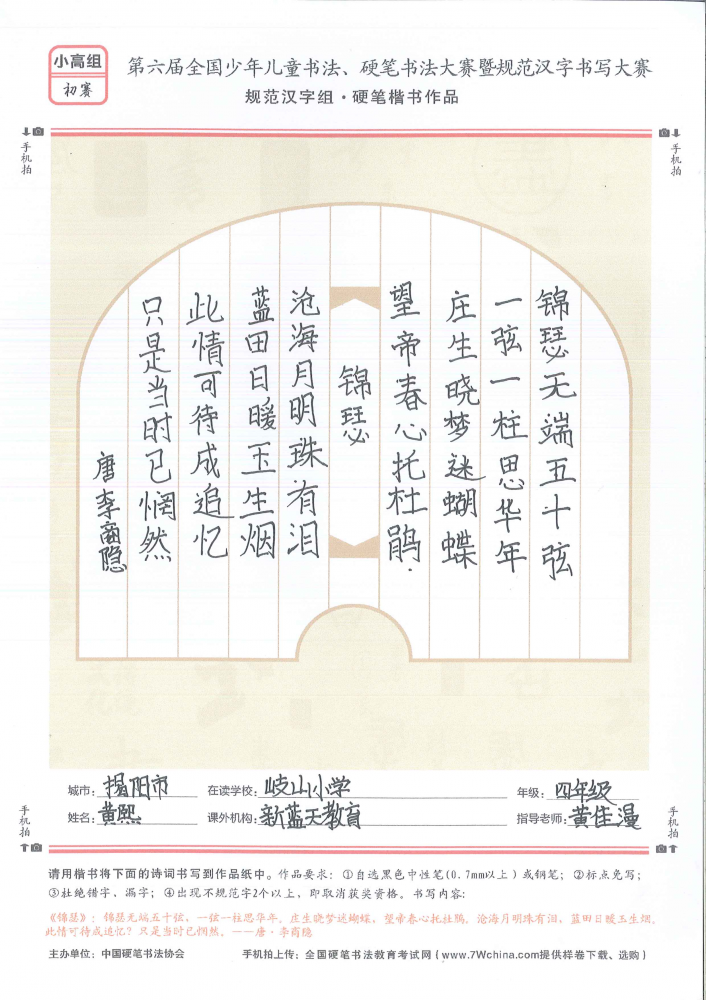 小高组
初赛
第六届全国少年儿童书法、硬笔书法大赛暨规范汉字书写大赛
规范汉字组·硬笔楷书作品
手机拍
手机拍
锦瑟无端五十弦
一弦一柱思华年
庄生晓梦迷蝴蝶
望帝春心托杜鹃.
锦瑟
沧海月明珠有泪
蓝田日暖玉生烟
此情可待成追忆
只是当时已惘然
唐李商隐
城市：揭阳市 在读学校：岐山小学 年级：四年级
姓名：黄熙 课外机构：新蓝天教育 指导老师：黄佳漫
手机拍
手机拍
请用楷书将下面的诗词书写到作品纸中。作品要求：①自选黑色中性笔(0.7mm以上）或钢笔；②标点免写；
③杜绝错字、漏字；④出现不规范字2个以上，即取消获奖资格。书写内容：
《锦瑟》：锦瑟无端五十弦，一弦一柱思华年。庄生晓梦迷蝴蝶，望帝春心托杜鹃。沧海月明珠有泪，蓝田日暖玉生烟。
此情可待成追忆？只是当时已惘然。——唐·李商隐
主办单位：中国硬笔书法协会 手机拍上传：全国硬笔书法教育考试网（www.7Wchina.com提供样卷下载、选购）